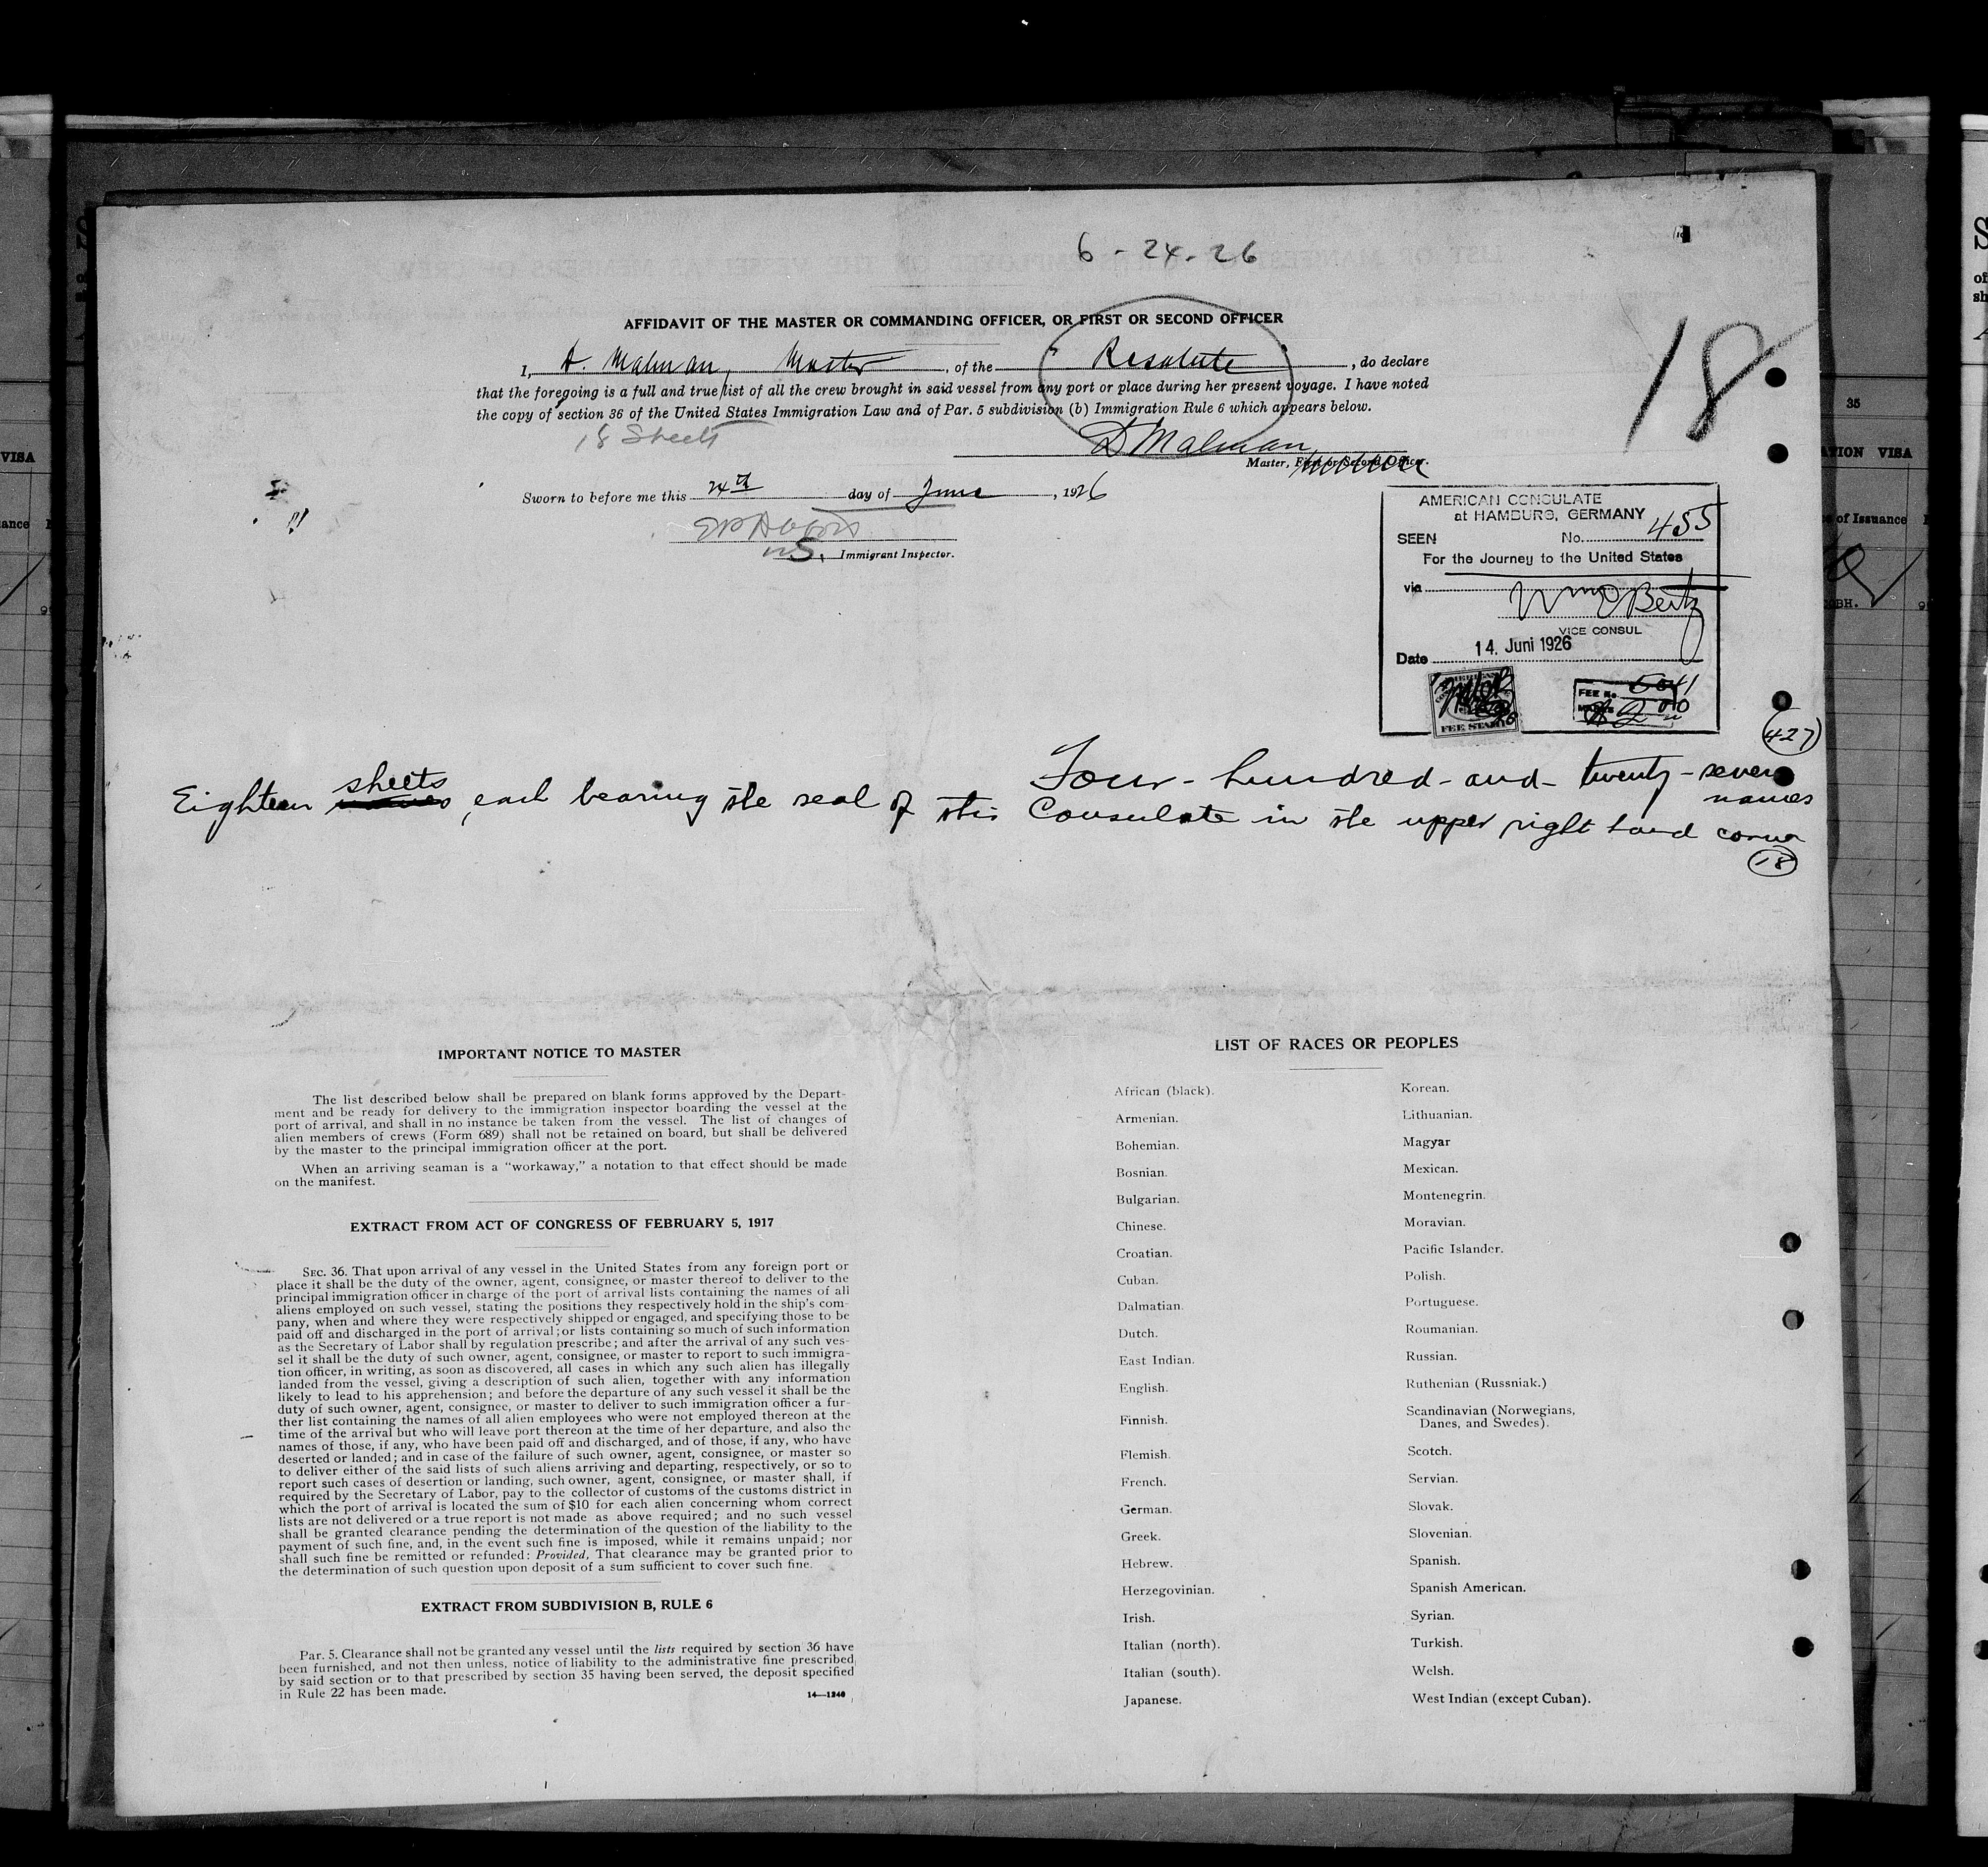 6 - 24 - 26
AFFIDAVIT OF THE MASTER OR COMMANDING OFFICER, OR FIRST OR SECOND OFFICER
I, A. Malman, Master, of the "Resolute", do declare
that the foregoing is a full and true list of all the crew brought in said vessel from any port or place during her present voyage. I have noted
the copy of section 36 of the United States Immigration Law and of Par. 5 subdivision (b) Immigration Rule 6 which appears below.
18 Sheets
18
Malman
Master, First or Second Officer.
Sworn to before me this 24th day of June, 1926
Immigrant Inspector.
AMERICAN CONSULATE
at HAMBURG, GERMANY
SEEN No. 455
For the Journey to the United States
via
Wm Bertz
VICE CONSUL
Date 14. Juni 1926
FEE STAMP
FEE No.
(427)
Four-hundred-and-twenty-seven
names
Eighteen sheets, each bearing the seal of this Consulate in the upper right hand corner
18
IMPORTANT NOTICE TO MASTER
The list described below shall be prepared on blank forms approved by the Depart-
ment and be ready for delivery to the immigration inspector boarding the vessel at the
port of arrival, and shall in no instance be taken from the vessel. The list of changes of
alien members of crews (Form 689) shall not be retained on board, but shall be delivered
by the master to the principal immigration officer at the port.
When an arriving seaman is a "workaway," a notation to that effect should be made
on the manifest.
EXTRACT FROM ACT OF CONGRESS OF FEBRUARY 5, 1917
SEC. 36. That upon arrival of any vessel in the United States from any foreign port or
place it shall be the duty of the owner, agent, consignee, or master thereof to deliver to the
principal immigration officer in charge of the port of arrival lists containing the names of all
aliens employed on such vessel, stating the positions they respectively hold in the ship's com-
pany, when and where they were respectively shipped or engaged, and specifying those to be
paid off and discharged in the port of arrival; or lists containing so much of such information
as the Secretary of Labor shall by regulation prescribe; and after the arrival of any such ves-
sel it shall be the duty of such owner, agent, consignee, or master to report to such immigra-
tion officer, in writing, as soon as discovered, all cases in which any such alien has illegally
landed from the vessel, giving a description of such alien, together with any information
likely to lead to his apprehension; and before the departure of any such vessel it shall be the
duty of such owner, agent, consignee, or master to deliver to such immigration officer a fur-
ther list containing the names of all alien employees who were not employed thereon at the
time of the arrival but who will leave port thereon at the time of her departure, and also the
names of those, if any, who have been paid off and discharged, and of those, if any, who have
deserted or landed; and in case of the failure of such owner, agent, consignee, or master so
to deliver either of the said lists of such aliens arriving and departing, respectively, or so to
report such cases of desertion or landing, such owner, agent, consignee, or master shall, if
required by the Secretary of Labor, pay to the collector of customs of the customs district in
which the port of arrival is located the sum of $10 for each alien concerning whom correct
lists are not delivered or a true report is not made as above required; and no such vessel
shall be granted clearance pending the determination of the question of the liability to the
payment of such fine, and, in the event such fine is imposed, while it remains unpaid; nor
shall such fine be remitted or refunded: Provided, That clearance may be granted prior to
the determination of such question upon deposit of a sum sufficient to cover such fine.
EXTRACT FROM SUBDIVISION B, RULE 6
Par. 5. Clearance shall not be granted any vessel until the lists required by section 36 have
been furnished, and not then unless, notice of liability to the administrative fine prescribed
by said section or to that prescribed by section 35 having been served, the deposit specified
in Rule 22 has been made.
14—1240
LIST OF RACES OR PEOPLES
African (black).
Armenian.
Bohemian.
Bosnian.
Bulgarian.
Chinese.
Croatian.
Cuban.
Dalmatian.
Dutch.
East Indian.
English.
Finnish.
Flemish.
French.
German.
Greek.
Hebrew.
Herzegovinian.
Irish.
Italian (north).
Italian (south).
Japanese.
Korean.
Lithuanian.
Magyar
Mexican.
Montenegrin.
Moravian.
Pacific Islander.
Polish.
Portuguese.
Roumanian.
Russian.
Ruthenian (Russniak.)
Scandinavian (Norwegians,
Danes, and Swedes).
Scotch.
Servian.
Slovak.
Slovenian.
Spanish.
Spanish American.
Syrian.
Turkish.
Welsh.
West Indian (except Cuban).
VISA
35
VISA
of Issuance